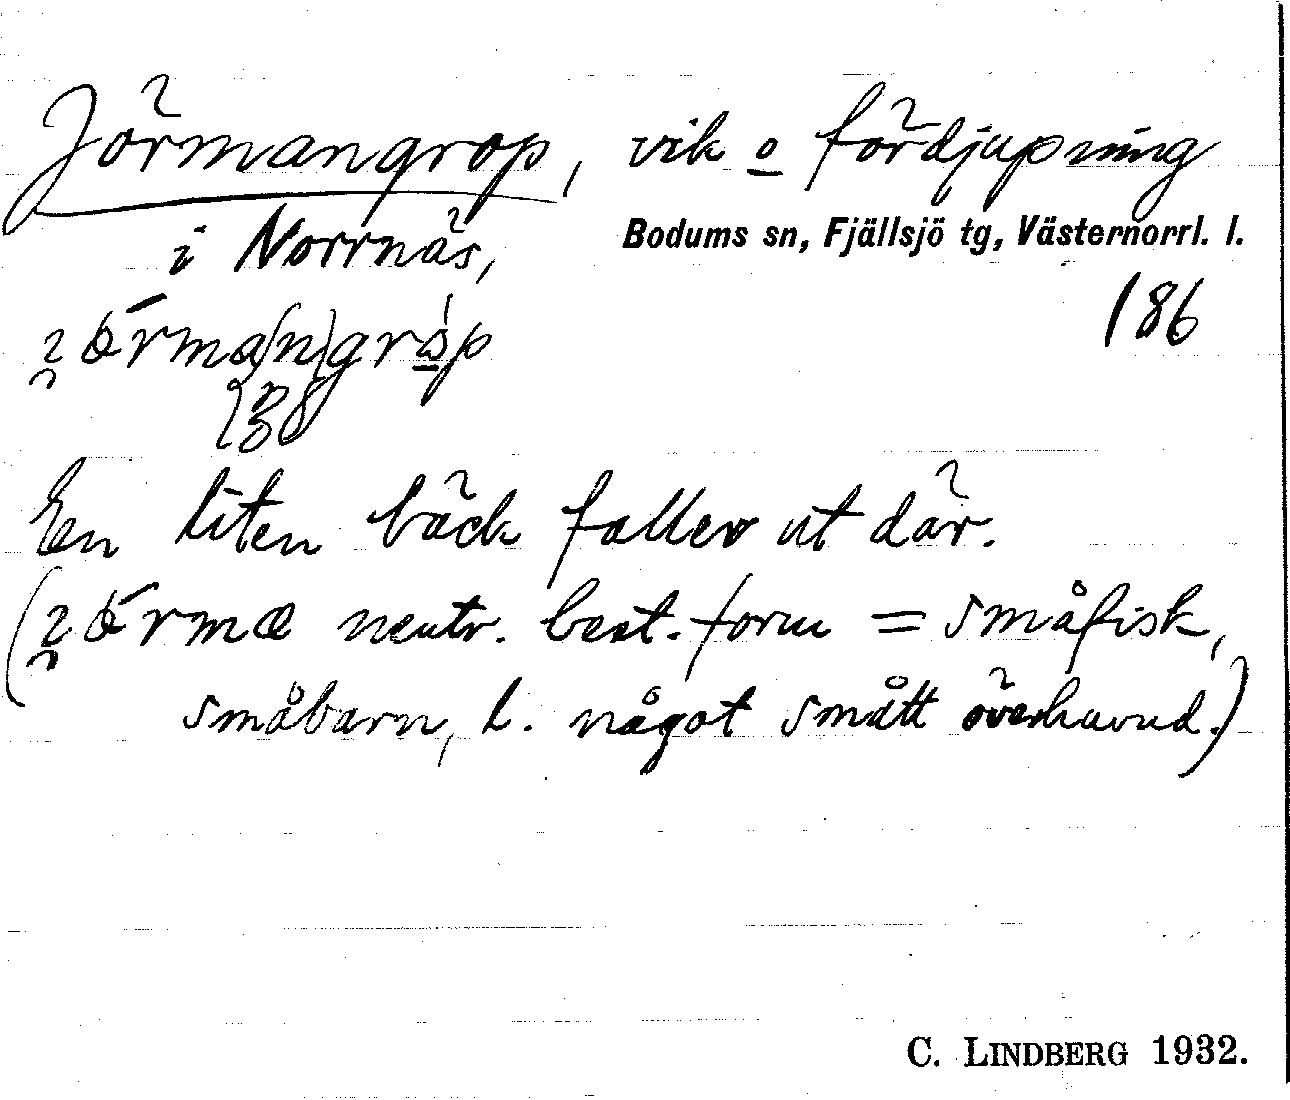 Jörmangrop, vik o fördjupning
i Norrnäs,
Bodums sn, Fjällsjö tg, Västernorrl. l.
186
En liten bäck faller ut där.
neutr. best. form = småfisk,
småbarn, l. något smått överhuvud.)
C. LINDBERG 1932.